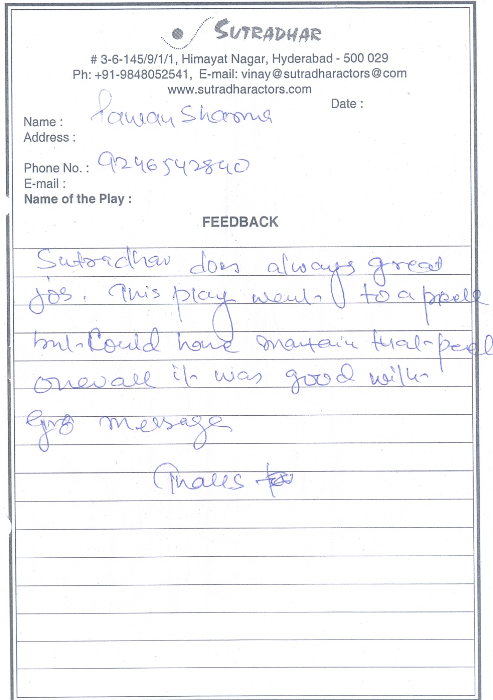 SUTRADHAR
# 3-6-145/9/1/1, Himayat Nagar, Hyderabad - 500 029
Ph: +91-9848052541, E-mail: vinay@sutradharactors.com
www.sutradharactors.com
Date :
Name : Pawan Sharma
Address :
Phone No. : 9246542840
E-mail :
Name of the Play :
FEEDBACK
Sutradhar does always great
job. This play went to a peak
but could have mantain that peak
overall it was good with
message